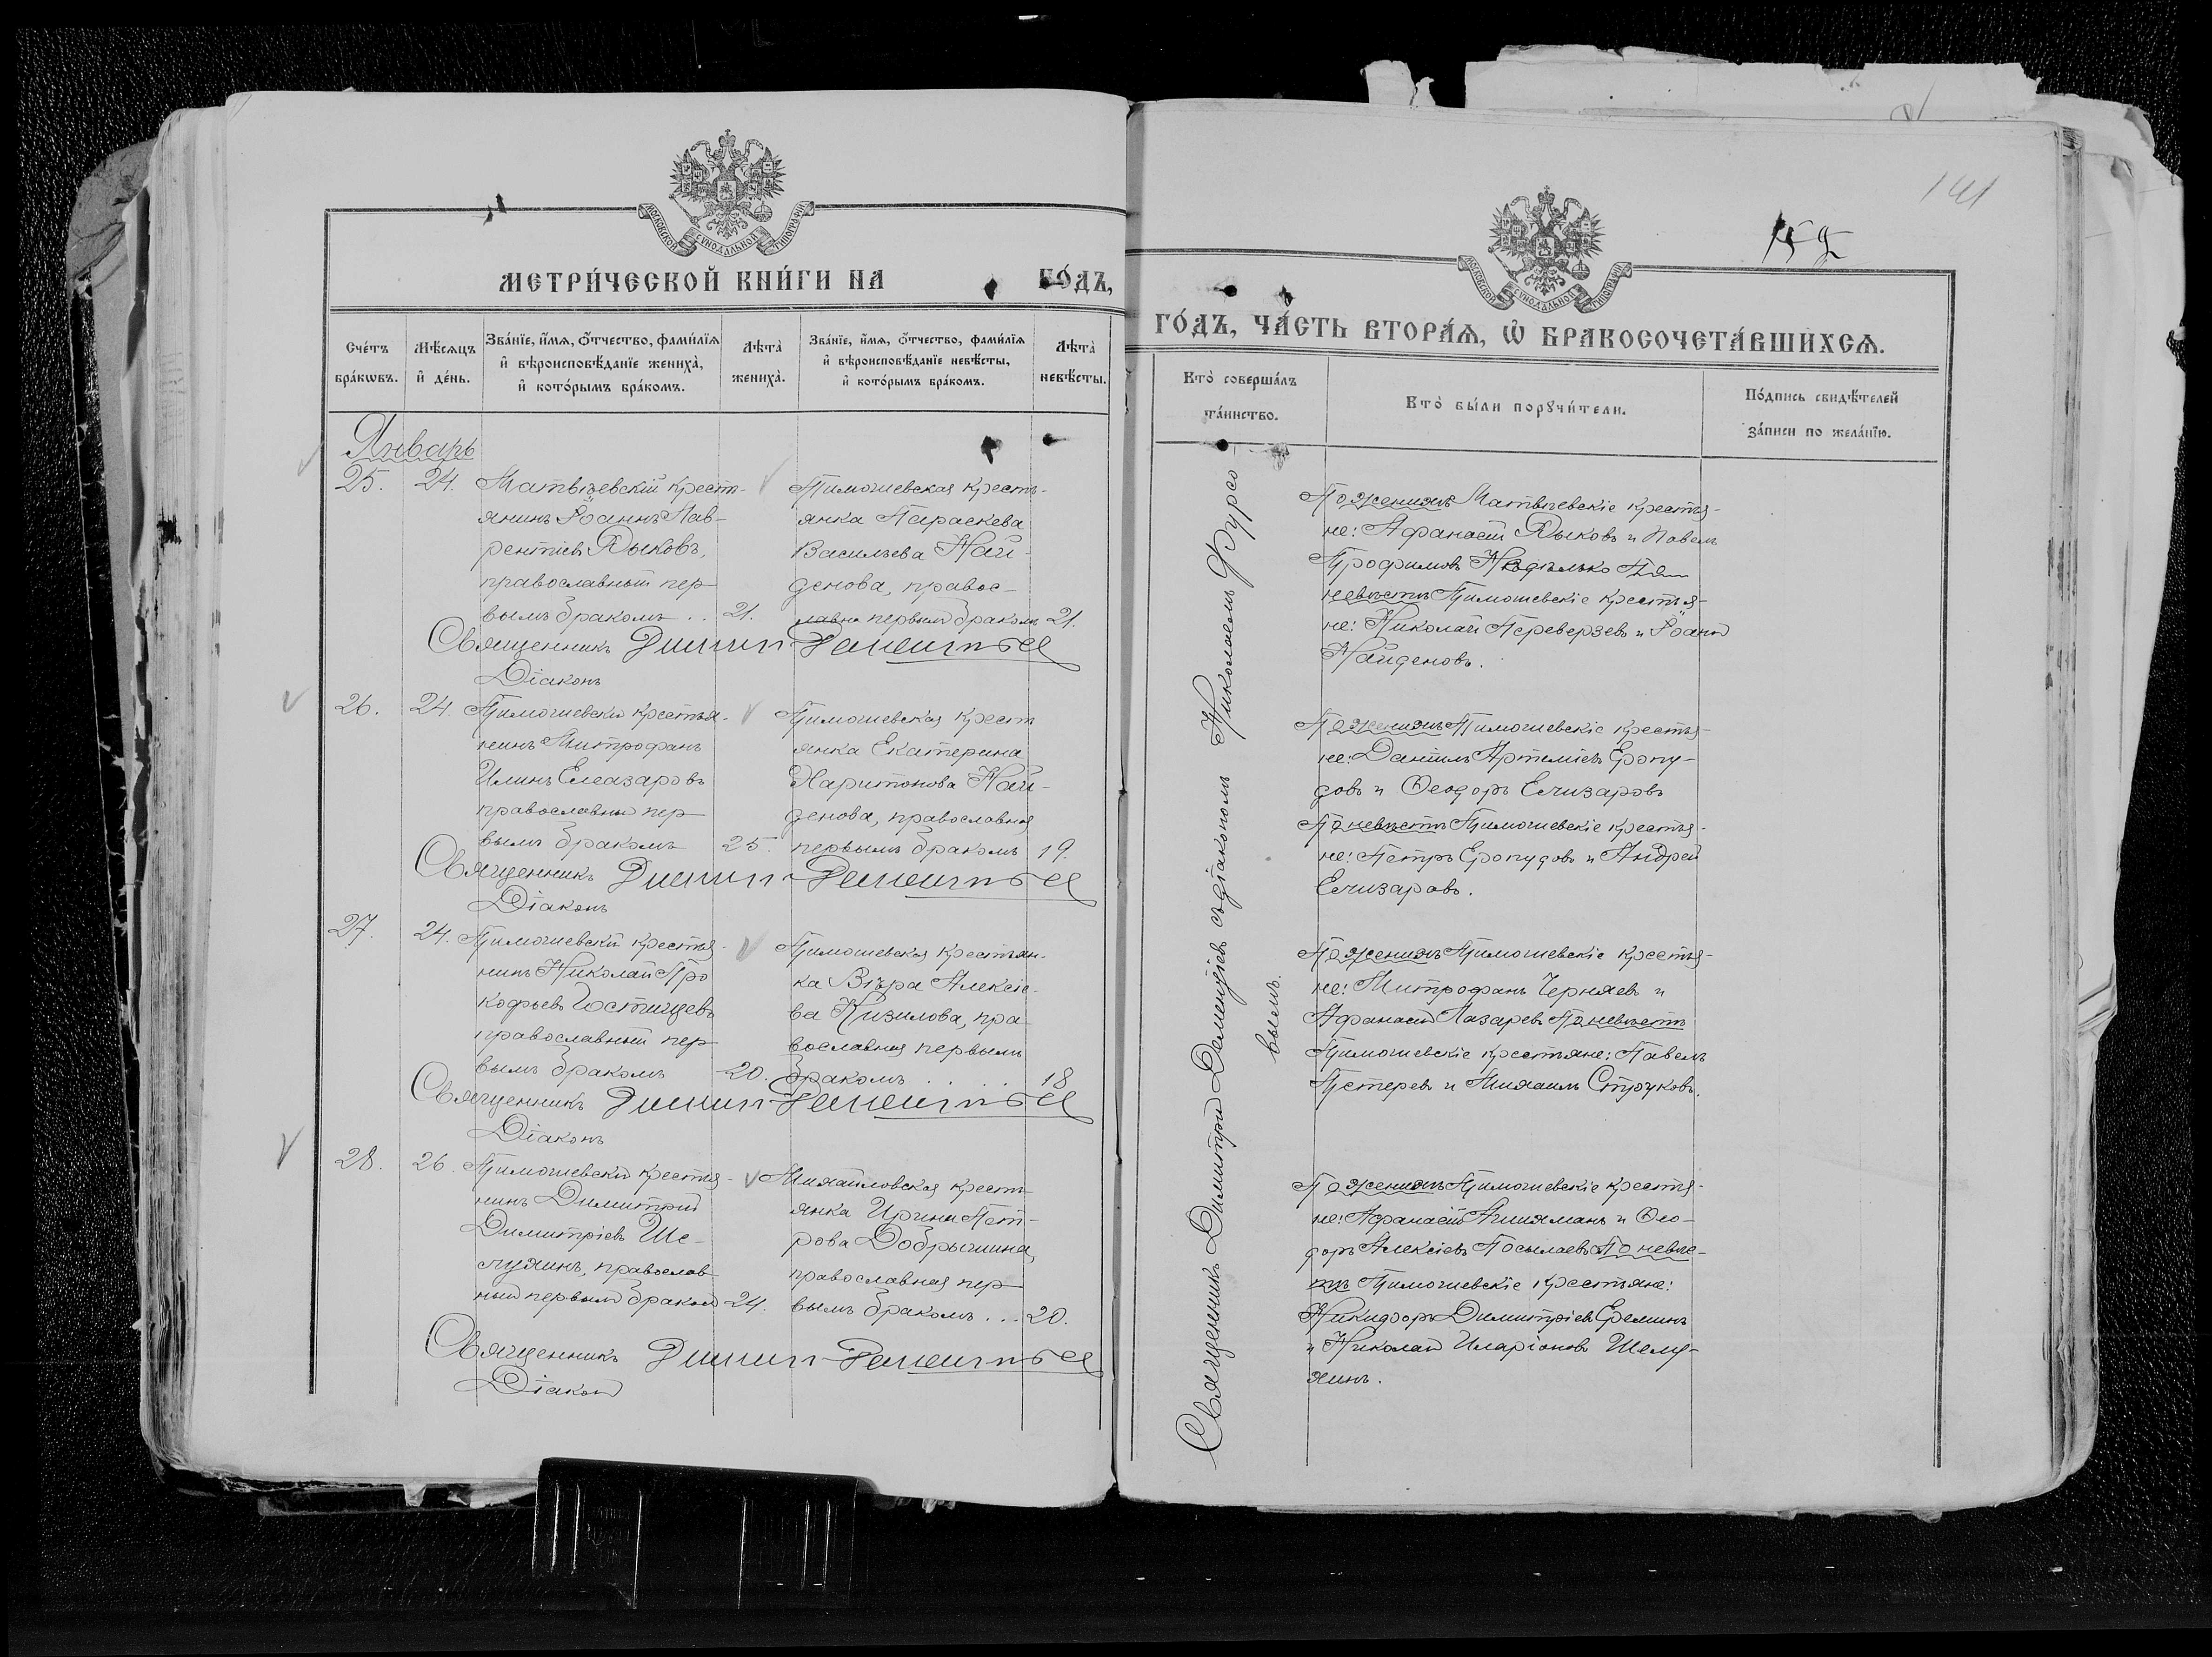 МОСКОВСКОЙ СѴНОДАЛЬНОЙ ТИПОГРАФІИ
МЕТРИ́ЧЕСКОЙ КНИ́ГИ НА ГО́ДЪ,
Сче́тъ бра́кωвъ.
Мѣ́сяцъ и҆ де́нь.
Зва́нїе, и҆́мѧ, ѻ҆́тчество, фами́лїѧ и҆ вѣроисповѣ́данїе жениха̀, и҆ кото́рымъ бра́комъ.
Лѣта̀ жениха̀.
Зва́нїе, и҆́мѧ, ѻ҆́тчество, фами́лїѧ и҆ вѣроисповѣ́данїе невѣ́сты, и҆ кото́рымъ бра́комъ.
Лѣта̀ невѣ́сты.
Январь
25. 24. Матвѣевскій крестъ-
янинъ Іоаннъ Лав-
рентіевъ Дыковъ,
православный пер-
вымъ бракомъ .. 21.
Тимошевская кресть-
янка Параскева
Васильева Най-
денова, правос-
лавн первымъ бракомъ 21.
Священникъ
Діаконъ
26. 24. Тимошевскій крестья-
нинъ Митрофанъ
Илинъ Елеазаровъ
православный пер-
вымъ бракомъ 25.
Тимошевская крестъ
янка Екатерина
Харитонова Най-
денова, православная
первымъ бракомъ 19.
Священникъ
Діаконъ
27. 24. Тимошевскій крестья-
нинъ Николай Про
кофьевъ Гостищевъ
православный пер-
вымъ бракомъ 20.
Тимошевская крестьян-
ка Вѣра Алексіе-
ва Кизилова, пра-
вославная первымъ
бракомъ . . . . 18
Священникъ
Діаконъ
28. 26. Тимошевскій крестья-
нинъ Димитрій
Димитріевъ Ше-
лухинъ, православ
ный первымъ бракомъ 24.
Михайловская кресть-
янка Ирина Пет-
рова Добрынина,
православная пер-
вымъ бракомъ ... 20.
Священникъ
Діаконъ
141
152
МОСКОВСКОЙ СѴНОДАЛЬНОЙ ТИПОГРАФІИ
ГО́ДЪ, ЧА́СТЬ ВТОРА́Ѧ, Ѡ҆ БРАКОСОЧЕТА́ВШИХСѦ.
Кто̀ соверша́лъ та́инство.
Кто̀ бы́ли порꙋчи́тели.
По́дпись свидѣ́телей за́писи по жела́нїю.
Священникъ Димитрій Дементіевъ съ діакономъ Николаемъ Фурсо
вымъ.
По женихѣ Матвѣевскіе крестья-
не: Афанасій Дыковъ и Павелъ
Трофимовъ Недѣлько По
невѣстѣ Тимошевскіе крестья-
не: Николай Переверзевъ и Іоаннъ
Найденовъ.
По женихѣ Тимошевскіе крестья-
не: Даніилъ Артеміевъ Еропу-
довъ и Ѳеодоръ Елизаровъ
По невѣстѣ Тимошевскіе крестья-
не: Петръ Еропудовъ и Андрей
Елизаровъ.
По женихѣ Тимошевскіе крестья-
не: Митрофанъ Черняевъ и
Афанасій Лазаревъ По невѣстѣ
Тимошевскіе крестьяне: Павелъ
Тетеревъ и Михаилъ Стручковъ.
По женихѣ Тимошевскіе крестья-
не: Афанасій и Ѳео-
доръ Алексіевъ Посылаевъ По невѣс-
тѣ Тимошевскіе крестьяне:
Никифоръ Димитріевъ Ереминъ
и Николай Иларіоновъ Шелу-
хинъ.